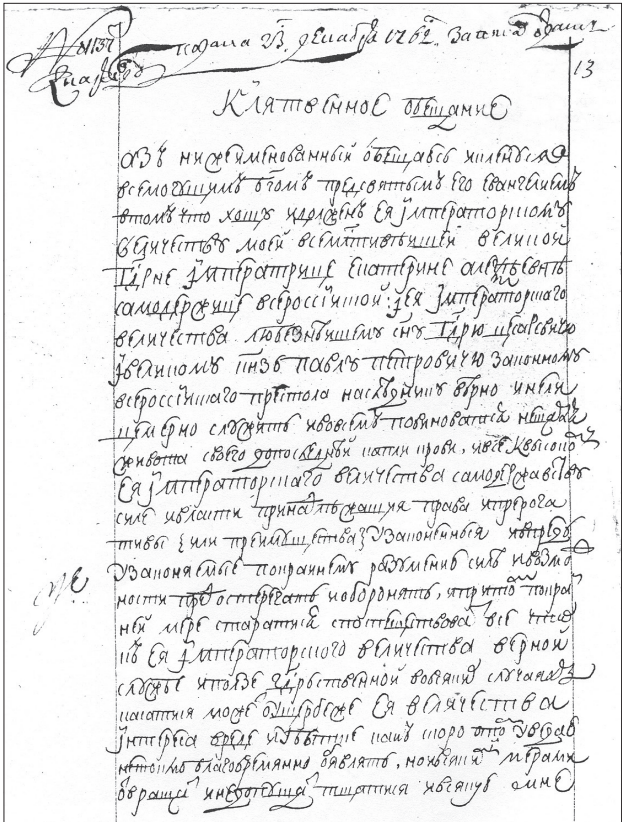 № 1137
подана 23. декабря 1762. записав отдать
13
Клятвенное обещание
азъ нижеименованный обещаюсь и кленуся
всемогущимъ бгомъ предсвятымъ Его Евангелиемъ
втомъ что хощу идолженъ Ея императорскому
величеству моей всемлтивейшей великой
гдрне императрице Екатерине алеѯеевне
самодержице всеросσийской: и ея императорскаго
величества любезнейшему сну гдрю цесаревичю
ивеликому кнзю павлу петровичю законному
всеросσийскаго престола наследнику верно и нели
цемерно служить ивовсемъ повиноватся нещадя
живота своего допоследней капли крови, ивсе Квысоко
Ея императорскаго величества самодержавству
силе ивласти принадлежащия права ипрерога
тивы (или преимущества) узаконенныя ивпредь
узаконяемые покрайнему разумению силе ивозмо
жности предостерегать иоборонять, иприто покра
ней мере старатися споспешествова все что
къ Ея императорского величества верной
службе иползе гдрственной вовсяких случаяхъ
касатися може оущербеже Ея величества
интереса вреде иубытке какъ скоро отом уведаю
нетокмо благовременно обявлять, ноивсякими мерами
отвращать инедопущать тщатися ивсякую мне